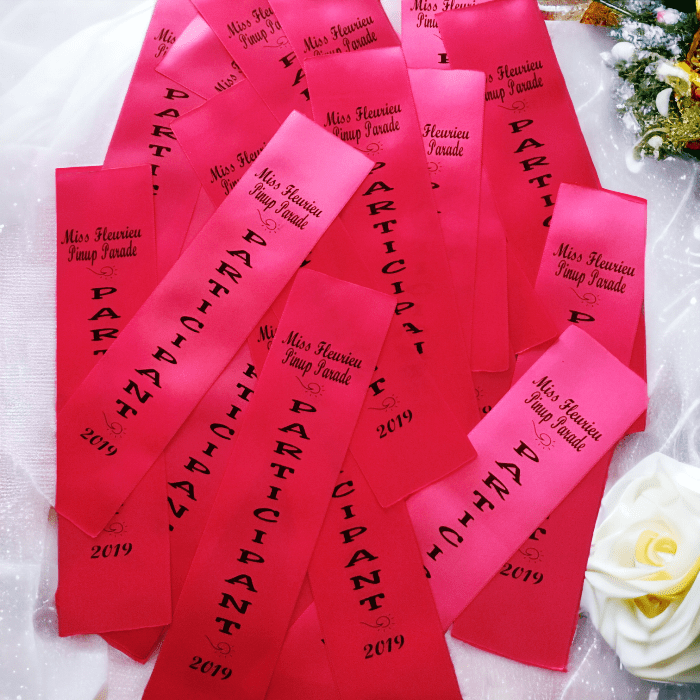 Miss Fleurieu
Pinup Parade
PARTICIPANT
2019
Miss Fleurieu
Pinup Parade
PARTICIPANT
2019
Miss Fleurieu
Pinup Parade
PARTICIPANT
2019
Miss Fleurieu
Pinup Parade
PARTIC
Miss Fleurieu
Pinup Parade
PAR
2019
Miss Fleurieu
Pinup Parade
P
2019
Miss Fleurieu
Pinup Parade
PARTICIPANT
Fleurieu
Parade
Miss Fleurieu
Pinup Parade
Miss Fleurieu
Pinup Parade
Miss Fleurieu
CIPANT
2019
TICIPANT